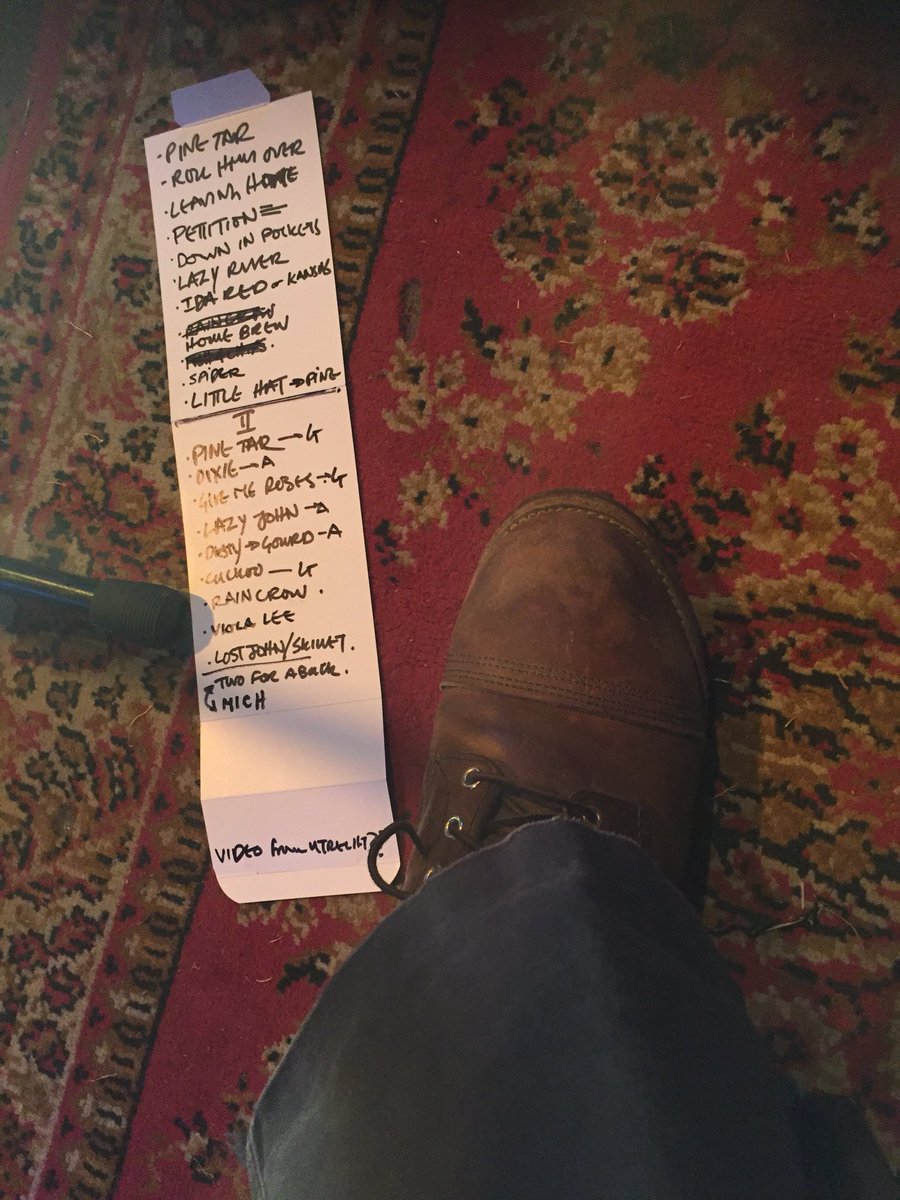 · PINE TAR
· ROLL HILLS OVER
· LEAVING HOME
· PETITION
· DOWN IN POCKETS
· LAZY RIVER
· IDA RED or KANSAS
HOME BREW
· SPIDER
· LITTLE HAT → PINE
II
· PINE TAR — G
· DIXIE — A
· GIVE ME ROSES — G
· LAZY JOHN → A
· DUSTY → GOURD — A
· CUCKOO — G
· RAINCROW .
· VIOLA LEE
· LOST JOHN/SKILLET.
TWO FOR A BUCK.
MICH
VIDEO from UTRECHT?